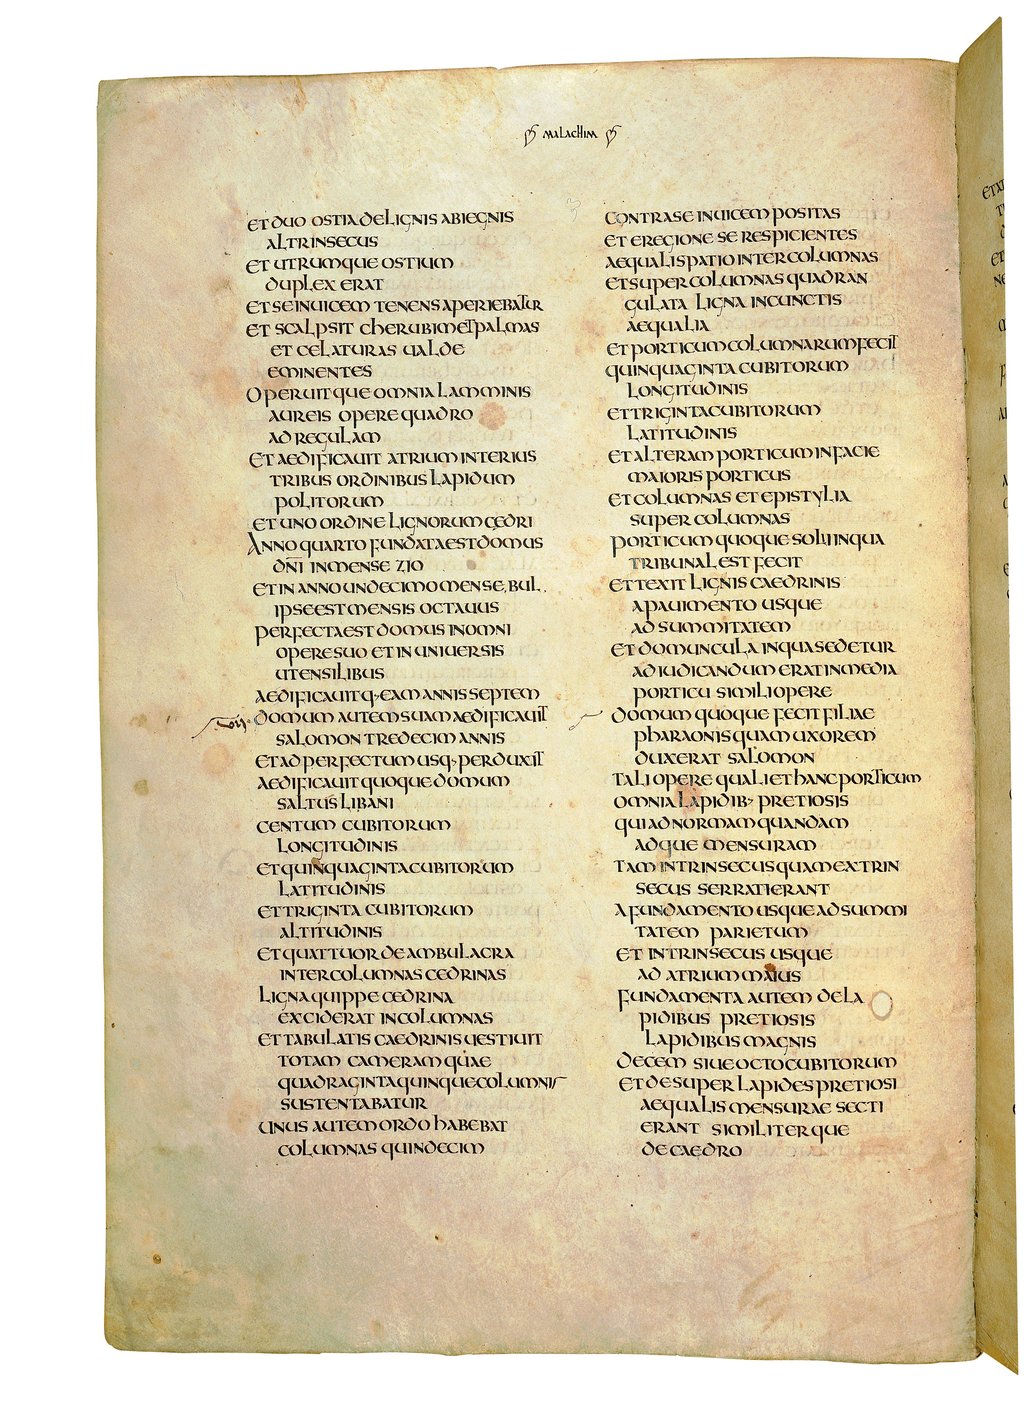 MALACHIM
ET DUO OSTIA DE LIGNIS ABIEGNIS
ALTRINSECUS
ET UTRUMQUE OSTIUM
DUPLEX ERAT
ET SE INUICEM TENENS APERIEBATUR
ET SCALPSIT CHERUBIM ET PALMAS
ET CELATURAS UALDE
EMINENTES
OPERUITQUE OMNIA LAMMINIS
AUREIS OPERE QUADRO
AD REGULAM
ET AEDIFICAUIT ATRIUM INTERIUS
TRIBUS ORDINIBUS LAPIDUM
POLITORUM
ET UNO ORDINE LIGNORUM CEDRI
ANNO QUARTO FUNDATA EST DOMUS
DÑI IN MENSE ZIO
ET IN ANNO UNDECIMO MENSE BUL
IPSE EST MENSIS OCTAUUS
PERFECTA EST DOMUS IN OMNI
OPERE SUO ET IN UNIUERSIS
UTENSILIBUS
AEDIFICAUITQ· EAM ANNIS SEPTEM
DOMUM AUTEM SUAM AEDIFICAUIT
SALOMON TREDECIM ANNIS
ET AD PERFECTUM USQ· PERDUXIT
AEDIFICAUIT QUOQUE DOMUM
SALTUS LIBANI
CENTUM CUBITORUM
LONGITUDINIS
ET QUINQUAGINTA CUBITORUM
LATITUDINIS
ET TRIGINTA CUBITORUM
ALTITUDINIS
ET QUATTUOR DEAMBULACRA
INTER COLUMNAS CEDRINAS
LIGNA QUIPPE CEDRINA
EXCIDERAT IN COLUMNAS
ET TABULATIS CAEDRINIS UESTIUIT
TOTAM CAMERAM QUAE
QUADRAGINTA QUINQUE COLUMNIS
SUSTENTABATUR
UNUS AUTEM ORDO HABEBAT
COLUMNAS QUINDECIM
CONTRA SE INUICEM POSITAS
ET E REGIONE SE RESPICIENTES
AEQUALI SPATIO INTER COLUMNAS
ET SUPER COLUMNAS QUADRAN
GULATA LIGNA IN CUNCTIS
AEQUALIA
ET PORTICUM COLUMNARUM FECIT
QUINQUAGINTA CUBITORUM
LONGITUDINIS
ET TRIGINTA CUBITORUM
LATITUDINIS
ET ALTERAM PORTICUM IN FACIE
MAIORIS PORTICUS
ET COLUMNAS ET EPISTYLIA
SUPER COLUMNAS
PORTICUM QUOQUE SOLII IN QUA
TRIBUNAL EST FECIT
ET TEXIT LIGNIS CAEDRINIS
A PAUIMENTO USQUE
AD SUMMITATEM
ET DOMUNCULA IN QUA SEDETUR
AD IUDICANDUM ERAT IN MEDIA
PORTICU SIMILI OPERE
DOMUM QUOQUE FECIT FILIAE
PHARAONIS QUAM UXOREM
DUXERAT SALOMON
TALI OPERE QUALI ET HANC PORTICUM
OMNIA LAPIDIB· PRETIOSIS
QUI AD NORMAM QUANDAM
ADQUE MENSURAM
TAM INTRINSECUS QUAM EXTRIN
SECUS SERRATI ERANT
A FUNDAMENTO USQUE AD SUMMI
TATEM PARIETUM
ET INTRINSECUS USQUE
AD ATRIUM MAIUS
FUNDAMENTA AUTEM DE LA
PIDIBUS PRETIOSIS
LAPIDIBUS MAGNIS
DECEM SIUE OCTO CUBITORUM
ET DESUPER LAPIDES PRETIOSI
AEQUALIS MENSURAE SECTI
ERANT SIMILITERQUE
DE CAEDRO